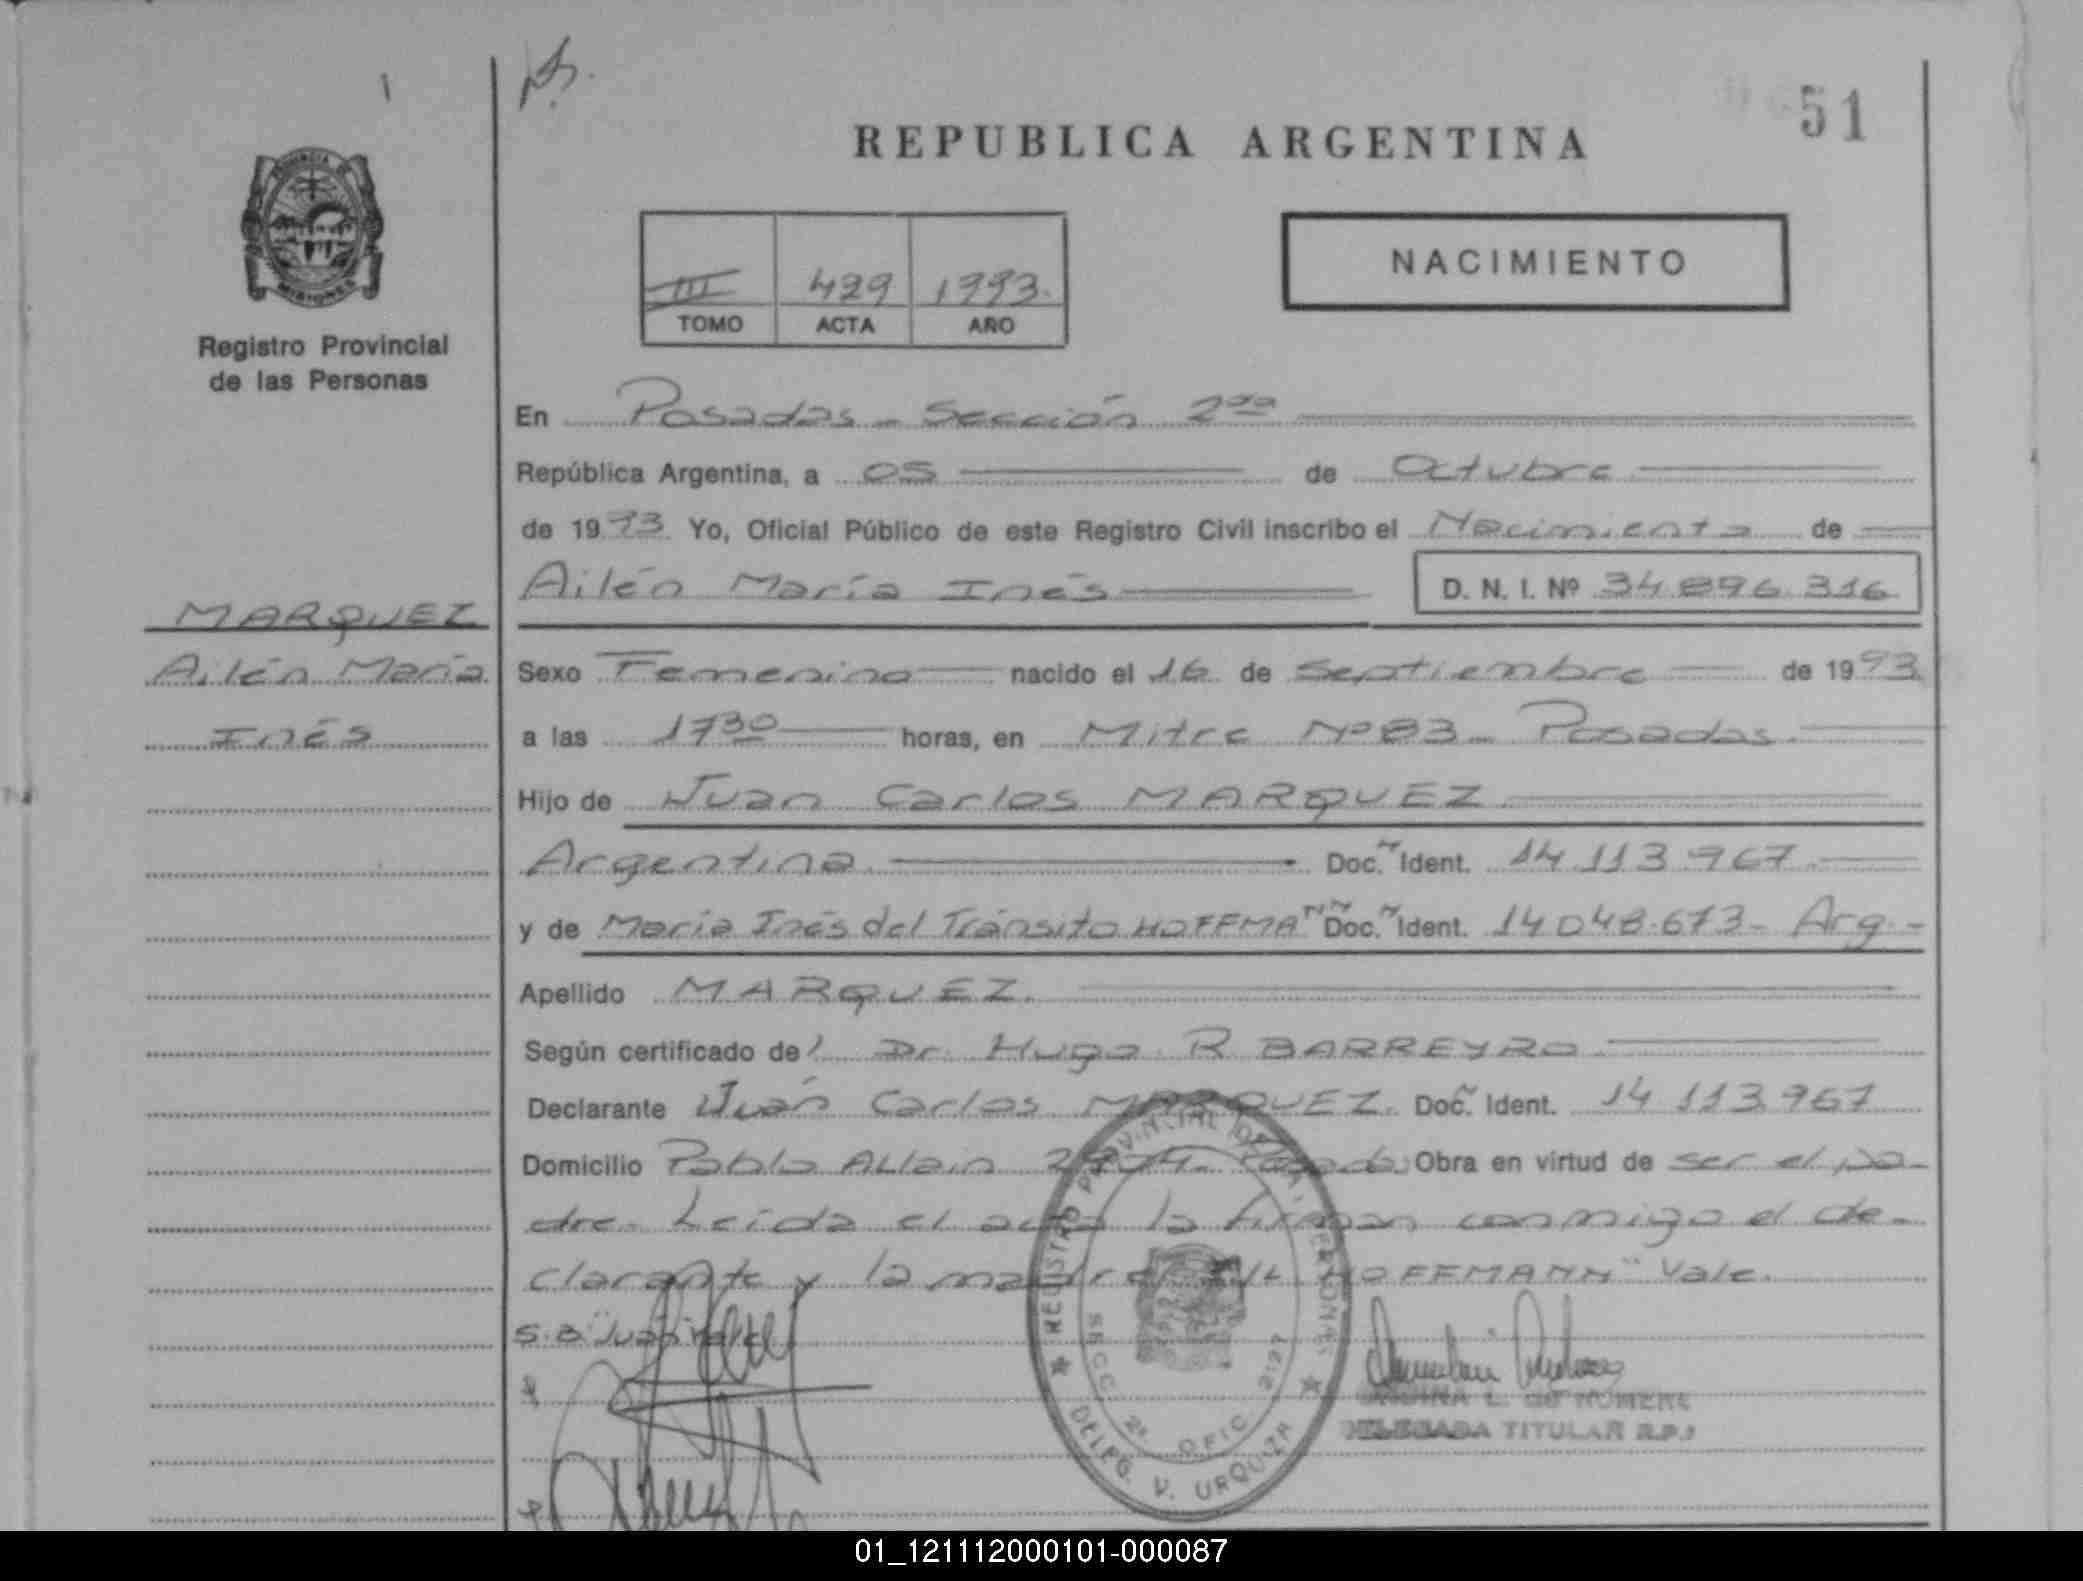 51
REPUBLICA ARGENTINA
PROVINCIA DE MISIONES
III 429 1993.
TOMO ACTA AÑO
NACIMIENTO
Registro Provincial
de las Personas
En Posadas - Sección 2da
República Argentina, a 05 de Octubre
de 1993. Yo, Oficial Público de este Registro Civil inscribo el Nacimiento de
Ailén María Inés D. N. I. Nº 34.896.316
MARQUEZ
Ailén María
Inés
Sexo Femenino nacido el 16 de Septiembre de 1993
a las 17 30 horas, en Mitre Nº 83 - Posadas.
Hijo de Juan Carlos MARQUEZ
Argentina Doc. Ident. 14.113.967
y de María Inés del Tránsito HOFFMANN Doc. Ident. 14.048.673 - Arg. -
Apellido MARQUEZ.
Según certificado del Dr. Hugo R BARREYRO
Declarante Juan Carlos MARQUEZ. Doc. Ident. 14.113.967
Domicilio Pablo Allain Obra en virtud de ser el pa-
dre. Leída el acta la firman conmigo el de-
clarante y la madre. HOFFMANN" Vale.
S.B. "Juan" Vale
REGISTRO PROVINCIAL DE LAS PERSONAS
SECC. 2ª OFIC. 2127
DELEG. V. URQUIZA
DELEGADA TITULAR R.P.
01_121112000101-000087